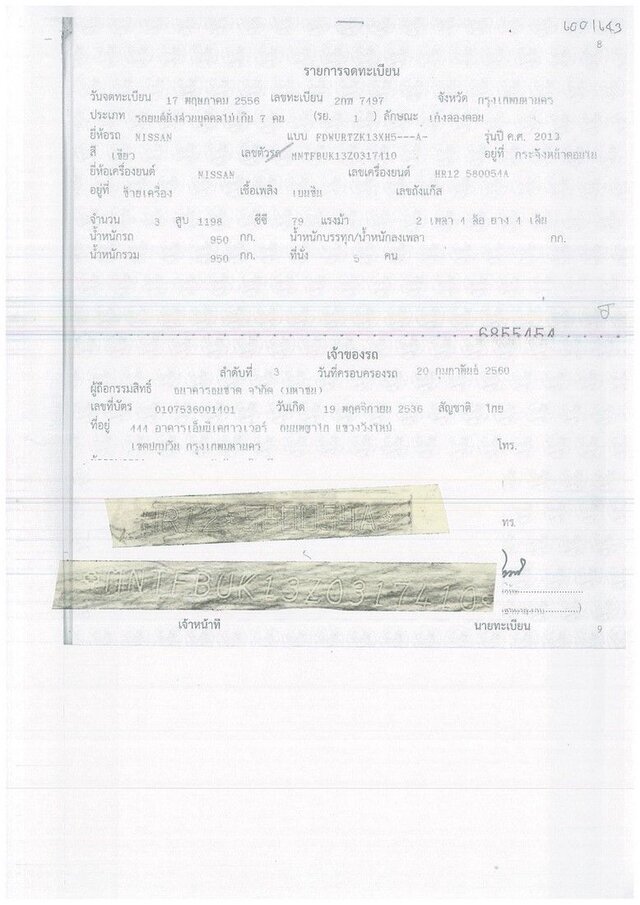 6001643
8
รายการจดทะเบียน
วันจดทะเบียน 17 พฤษภาคม 2556 เลขทะเบียน 2กท 7497 จังหวัด กรุงเทพมหานคร
ประเภท รถยนต์นั่งส่วนบุคคลไม่เกิน 7 คน (รย. 1 ) ลักษณะ เก๋งสองตอน
ยี่ห้อรถ NISSAN แบบ FDWURTZK13XH5---A- รุ่นปี ค.ศ. 2013
สี เขียว เลขตัวรถ MNTFBUK13Z0317410 อยู่ที่ กระจังหน้าตอนใน
ยี่ห้อเครื่องยนต์ NISSAN เลขเครื่องยนต์ HR12 580054A
อยู่ที่ ซ้ายเครื่อง เชื้อเพลิง เบนซิน เลขถังแก๊ส
จำนวน 3 สูบ 1198 ซีซี 79 แรงม้า 2 เพลา 4 ล้อ ยาง 4 เส้น
น้ำหนักรถ 950 กก. น้ำหนักบรรทุก/น้ำหนักลงเพลา กก.
น้ำหนักรวม 950 กก. ที่นั่ง 5 คน
6855454
เจ้าของรถ
ลำดับที่ 3 วันที่ครอบครองรถ 20 กุมภาพันธ์ 2560
ผู้ถือกรรมสิทธิ์ ธนาคารธนชาต จำกัด (มหาชน)
เลขที่บัตร 0107536001401 วันเกิด 19 พฤศจิกายน 2536 สัญชาติ ไทย
ที่อยู่ 444 อาคารเอ็มบีเคทาวเวอร์ ถนนพญาไท แขวงวังใหม่
เขตปทุมวัน กรุงเทพมหานคร โทร.
ทร.
*MNTFBUK13Z0317410
เจ้าหน้าที่ นายทะเบียน
9